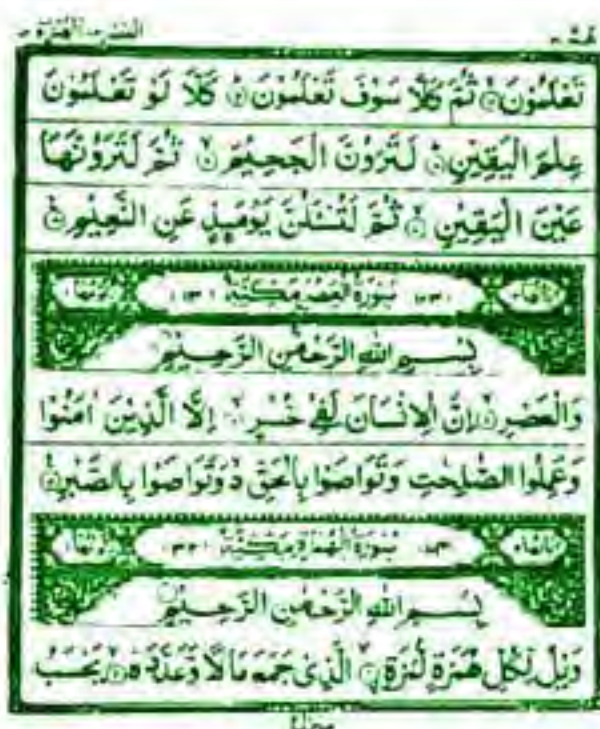 عمّ ٣٠ العصر ١٠٣ الهمزة ١٠٤
تَعْلَمُوْنَ ۙ ثُمَّ كَلَّا سَوْفَ تَعْلَمُوْنَ ۙ كَلَّا لَوْ تَعْلَمُوْنَ
عِلْمَ الْيَقِيْنِ ۙ لَتَرَوُنَّ الْجَحِيْمَ ۙ ثُمَّ لَتَرَوُنَّهَا
عَيْنَ الْيَقِيْنِ ۙ ثُمَّ لَتُسْـَٔلُنَّ يَوْمَىِٕذٍ عَنِ النَّعِيْمِ
سُوْرَةُ الْعَصْرِ مَكِّيَّةٌ
بِسْمِ اللهِ الرَّحْمٰنِ الرَّحِيْمِ
وَالْعَصْرِ ۙ اِنَّ الْاِنْسَانَ لَفِيْ خُسْرٍ ۙ اِلَّا الَّذِيْنَ اٰمَنُوْا
وَعَمِلُوا الصّٰلِحٰتِ وَتَوَاصَوْا بِالْحَقِّ ۙ وَتَوَاصَوْا بِالصَّبْرِ
سُوْرَةُ الْهُمَزَةِ مَكِّيَّةٌ
بِسْمِ اللهِ الرَّحْمٰنِ الرَّحِيْمِ
وَيْلٌ لِّكُلِّ هُمَزَةٍ لُّمَزَةٍ ۙ الَّذِيْ جَمَعَ مَالًا وَّعَدَّدَهٗ ۙ يَحْسَبُ